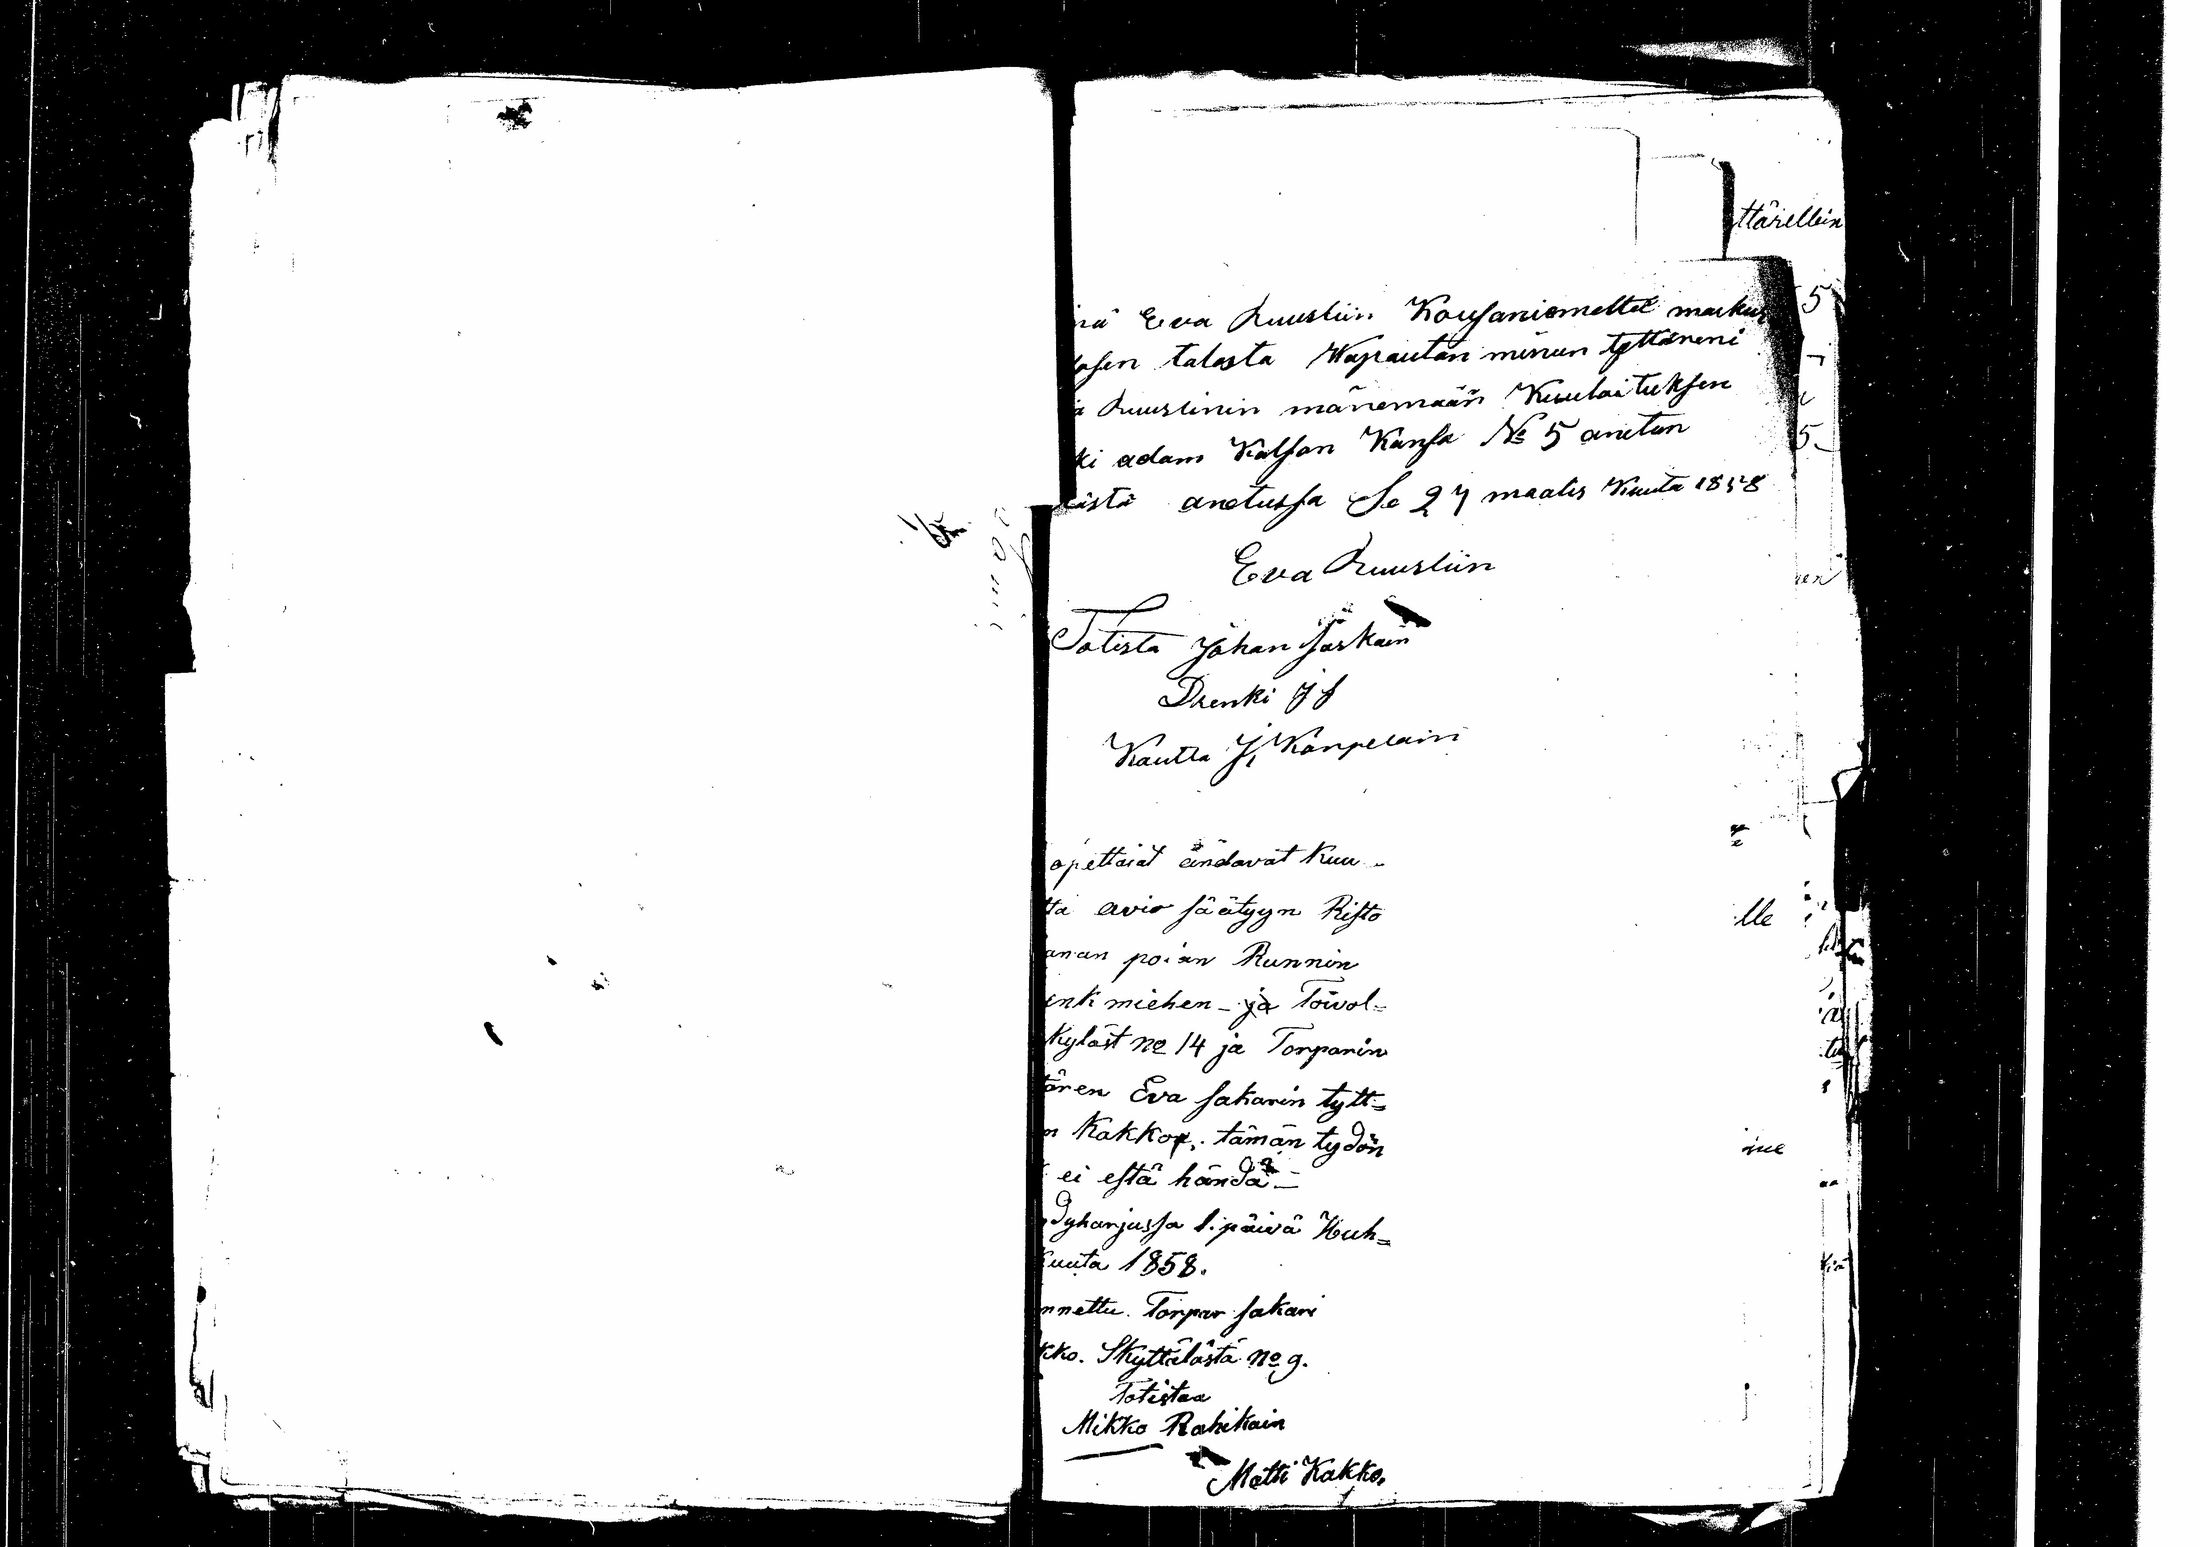 ttärellein
nä Eva Ruusliin Kousaniemeltä markus
osen talosta Wapautan minun tyttäreni
a Ruuslinin mänemään Kuulaituksen
ki adam Kalson Kansa No 5 anetun
ästä anetussa Se 27 maalis Kuuta 1858
Eva Ruusliin
Totista Johan Jäskäin
Drenki JJ
Kautta J, Kärpeläin
opettaiat andavat Kuu-
ta avio säätyyn Risto
anan poian Runnin
enk miehen - ja Toivol-
Kyläst no 14 ja Torparin
tären Eva sakarin tytt-
n Kakko,. tämän tydön
ei estä händä -
dyharjussa 1. päivä Huh-
kuuta 1858.
nnettu. Torpar sakari
kko. Skyttälästä no 9.
Totistaa
Mikko Rahikain
Matti Kakko.
lle